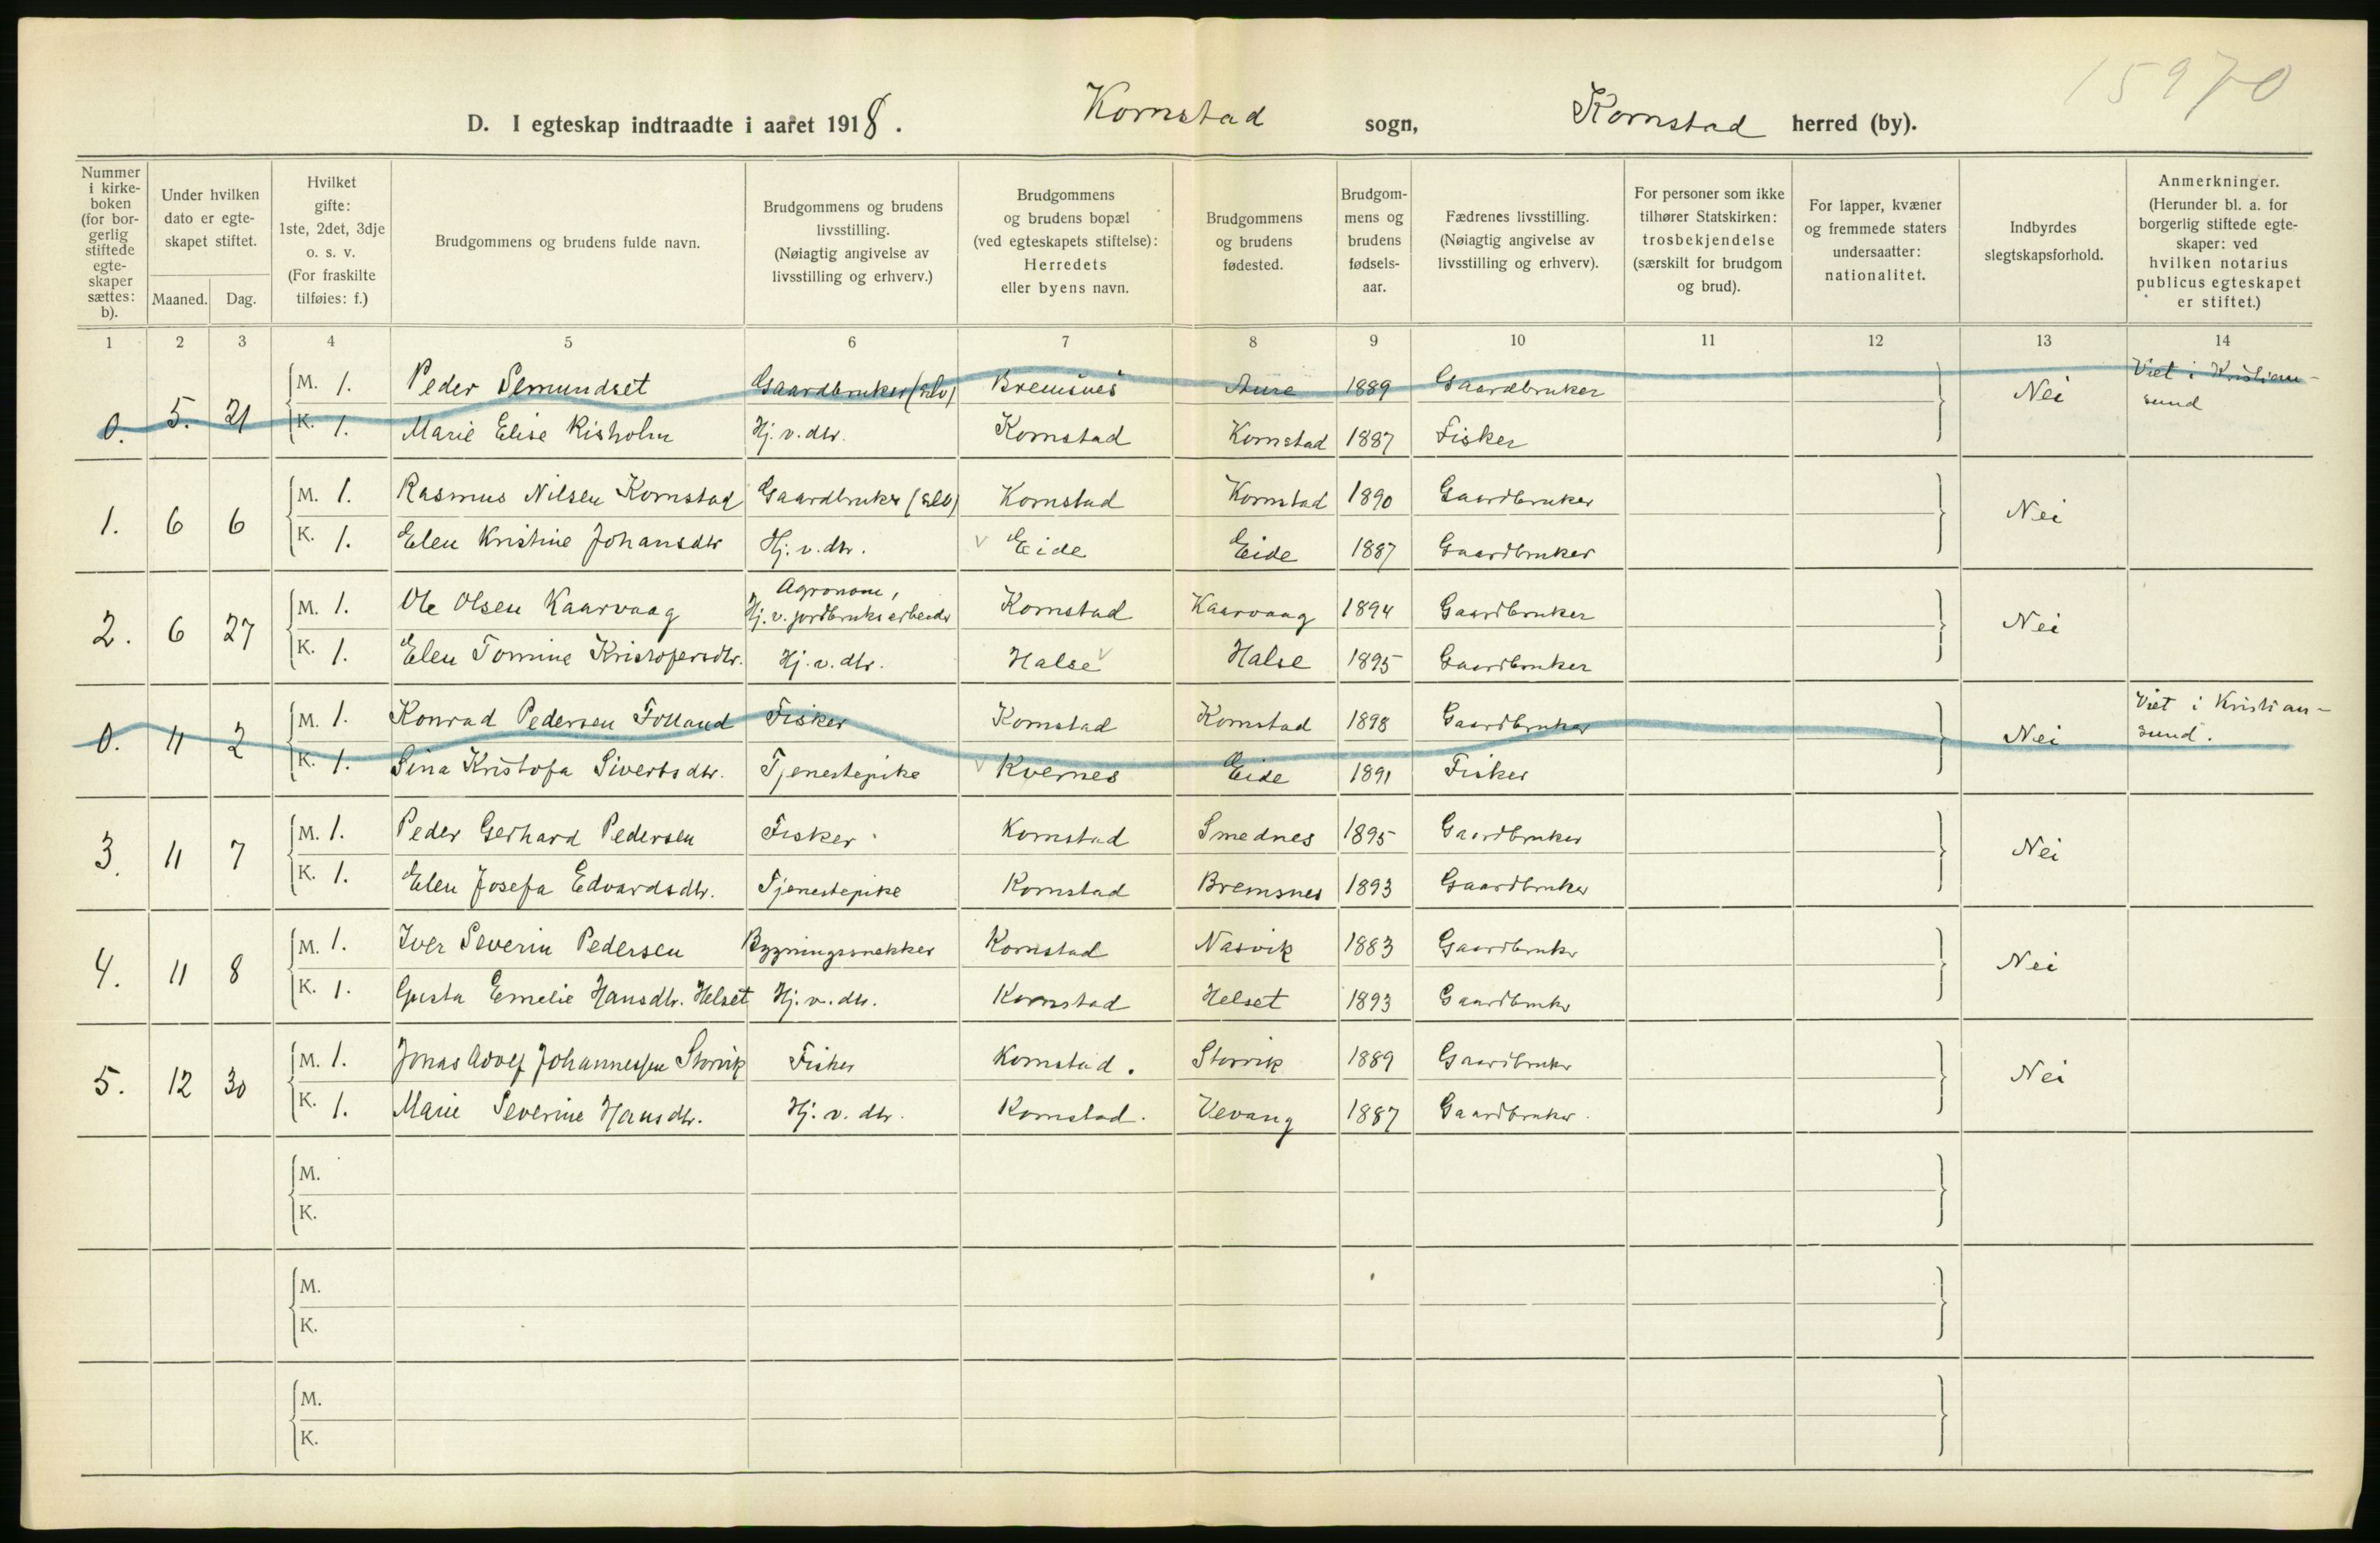 15970
D. I egteskap indtraadte i aaret 1918. Kornstad sogn, Kornstad herred (by).
Nummer i kirke-boken (for bor-gerlig stiftede egte-skaper sættes: b).
Under hvilken dato er egte-skapet stiftet.
Maaned. Dag.
Hvilket gifte: 1ste, 2det, 3dje o. s. v. (For fraskilte tilføies: f.)
Brudgommens og brudens fulde navn.
Brudgommens og brudens livsstilling. (Nøiagtig angivelse av livsstilling og erhverv.)
Brudgommens og brudens bopæl (ved egteskapets stiftelse): Herredets eller byens navn.
Brudgommens og brudens fødested.
Brudgom-mens og brudens fødsels-aar.
Fædrenes livsstilling. (Nøiagtig angivelse av livsstilling og erhverv).
For personer som ikke tilhører Statskirken: trosbekjendelse (særskilt for brudgom og brud).
For lapper, kvæner og fremmede staters undersaatter: nationalitet.
Indbyrdes slegtskapsforhold.
Anmerkninger. (Herunder bl. a. for borgerlig stiftede egte-skaper: ved hvilken notarius publicus egteskapet er stiftet.)
1 2 3 4 5 6 7 8 9 10 11 12 13 14
0. 5. 21 M. 1. Peder Semundset Gaardbruker (selv) Bremsnes Aure 1889 Gaardbruker Nei Viet i Kristian-sund
K. 1. Marie Elise Risholm Hj. v. dtr. Kornstad Kornstad 1887 Fisker
1. 6 6 M. 1. Rasmus Nilsen Kornstad Gaardbruker (selv) Kornstad Kornstad 1890 Gaardbruker Nei
K. 1. Elen Kristine Johansdtr Hj. v. dtr. v Eide Eide 1887 Gaardbruker
2. 6 27 M. 1. Ole Olsen Kaarvaag Agronom, Hj. v. jordbruksarbeide Kornstad Kaarvaag 1894 Gaardbruker Nei
K. 1. Elen Tomine Kristofersdtr. Hj. v. dtr. Halse v Halse 1895 Gaardbruker
0. 11 2 M. 1. Konrad Pedersen Folland Fisker Kornstad Kornstad 1898 Gaardbruker Nei Viet i Kristian-sund.
K. 1. Sina Kristofa Sivertsdtr. Tjenestepike v Kvernes Eide 1891 Fisker
3. 11 7 M. 1. Peder Gerhard Pedersen Fisker Kornstad Smednes 1895 Gaardbruker Nei
K. 1. Elen Josefa Edvardsdtr. Tjenestepike Kornstad Bremsnes 1893 Gaardbruker
4. 11 8 M. 1. Iver Severin Pedersen Bygningssnekker Kornstad Nasvik 1883 Gaardbruker Nei
K. 1. Gusta Emelie Hansdtr. Helset Hj. v. dtr. Kornstad Helset 1893 Gaardbruker
5. 12 30 M. 1. Jonas Adolf Johannessen Storvik Fisker Kornstad. Storvik 1889 Gaardbruker Nei
K. 1. Marie Severine Hansdtr. Hj. v. dtr. Kornstad. Vevang 1887 Gaardbruker.
M.
K.
M.
K.
M.
K.